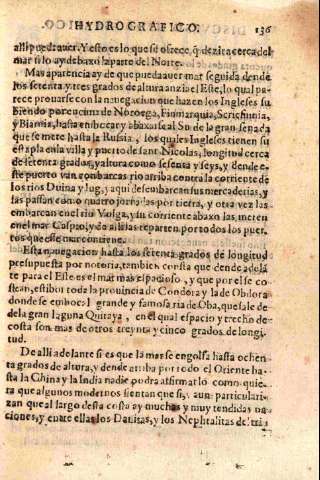 HYDROGRAFICO. 136
alli puedaauer. Y esto es lo que se ofrece, q̃ dezira cerca del
mar si lo ay debaxo laparte del Norte.
Mas apariencia ay de que puedaauer mar seguida dende
los setenta y tres grados de altura anzi bel Este, lo qual pa-
rece prouarse con la nauegacion que hazen los Ingleses su
biendo por encima de Noroega, Finmarquia, Scricfinnia,
y Biarmia, hasta embocar y abaxarse al Su de la gran senada
que se mete hasta la Rusia, los quales Ingleses tienen su
estapla en la villa y puerto de sant Nicolas, longitud cerca
de setenta grados, y altura como sesenta y seys, y dende e-
ste puerto van con barcas rio arriba contra la corriente de
los rios Duina y Iug, y aqui desembarcan sus mercaderias, y
las passan como quatro jornadas por tierra, y otra vez las
embarcan en el rio Volga, y su corriente abaxo las meten
en el mar Caspio, y de alli las reparten por todos los puer-
tos que este mar contiene.
Esta nauegacion hasta los setenta grados de longitud
presupuesta por notoria, tambien consta que dende adelã
te para el Este es el mar mas espacioso, y que por el se co
stean, estibor toda la prouincia de Condora y la de Obdora
donde se emboca l grande y famosa ria de Oba, que sale de
de la gran laguna Quitaya, en el qual espacio y trecho de
costa son mas de otros treynta y cinco grados de longi-
tud.
De alli adelante si es que la mar se engolfa hasta ochen
ta grados de altura, y dende arriba por todo el Oriente ha-
sta la China y la India nadie podra afirmarlo como quie-
ra que algunos modernos sientan que si, y aun particulari-
zan que al largo desta costa ay muchas y muy tendidas na
ciones, y entre ellas los Danitas, y los Nephtalitas de